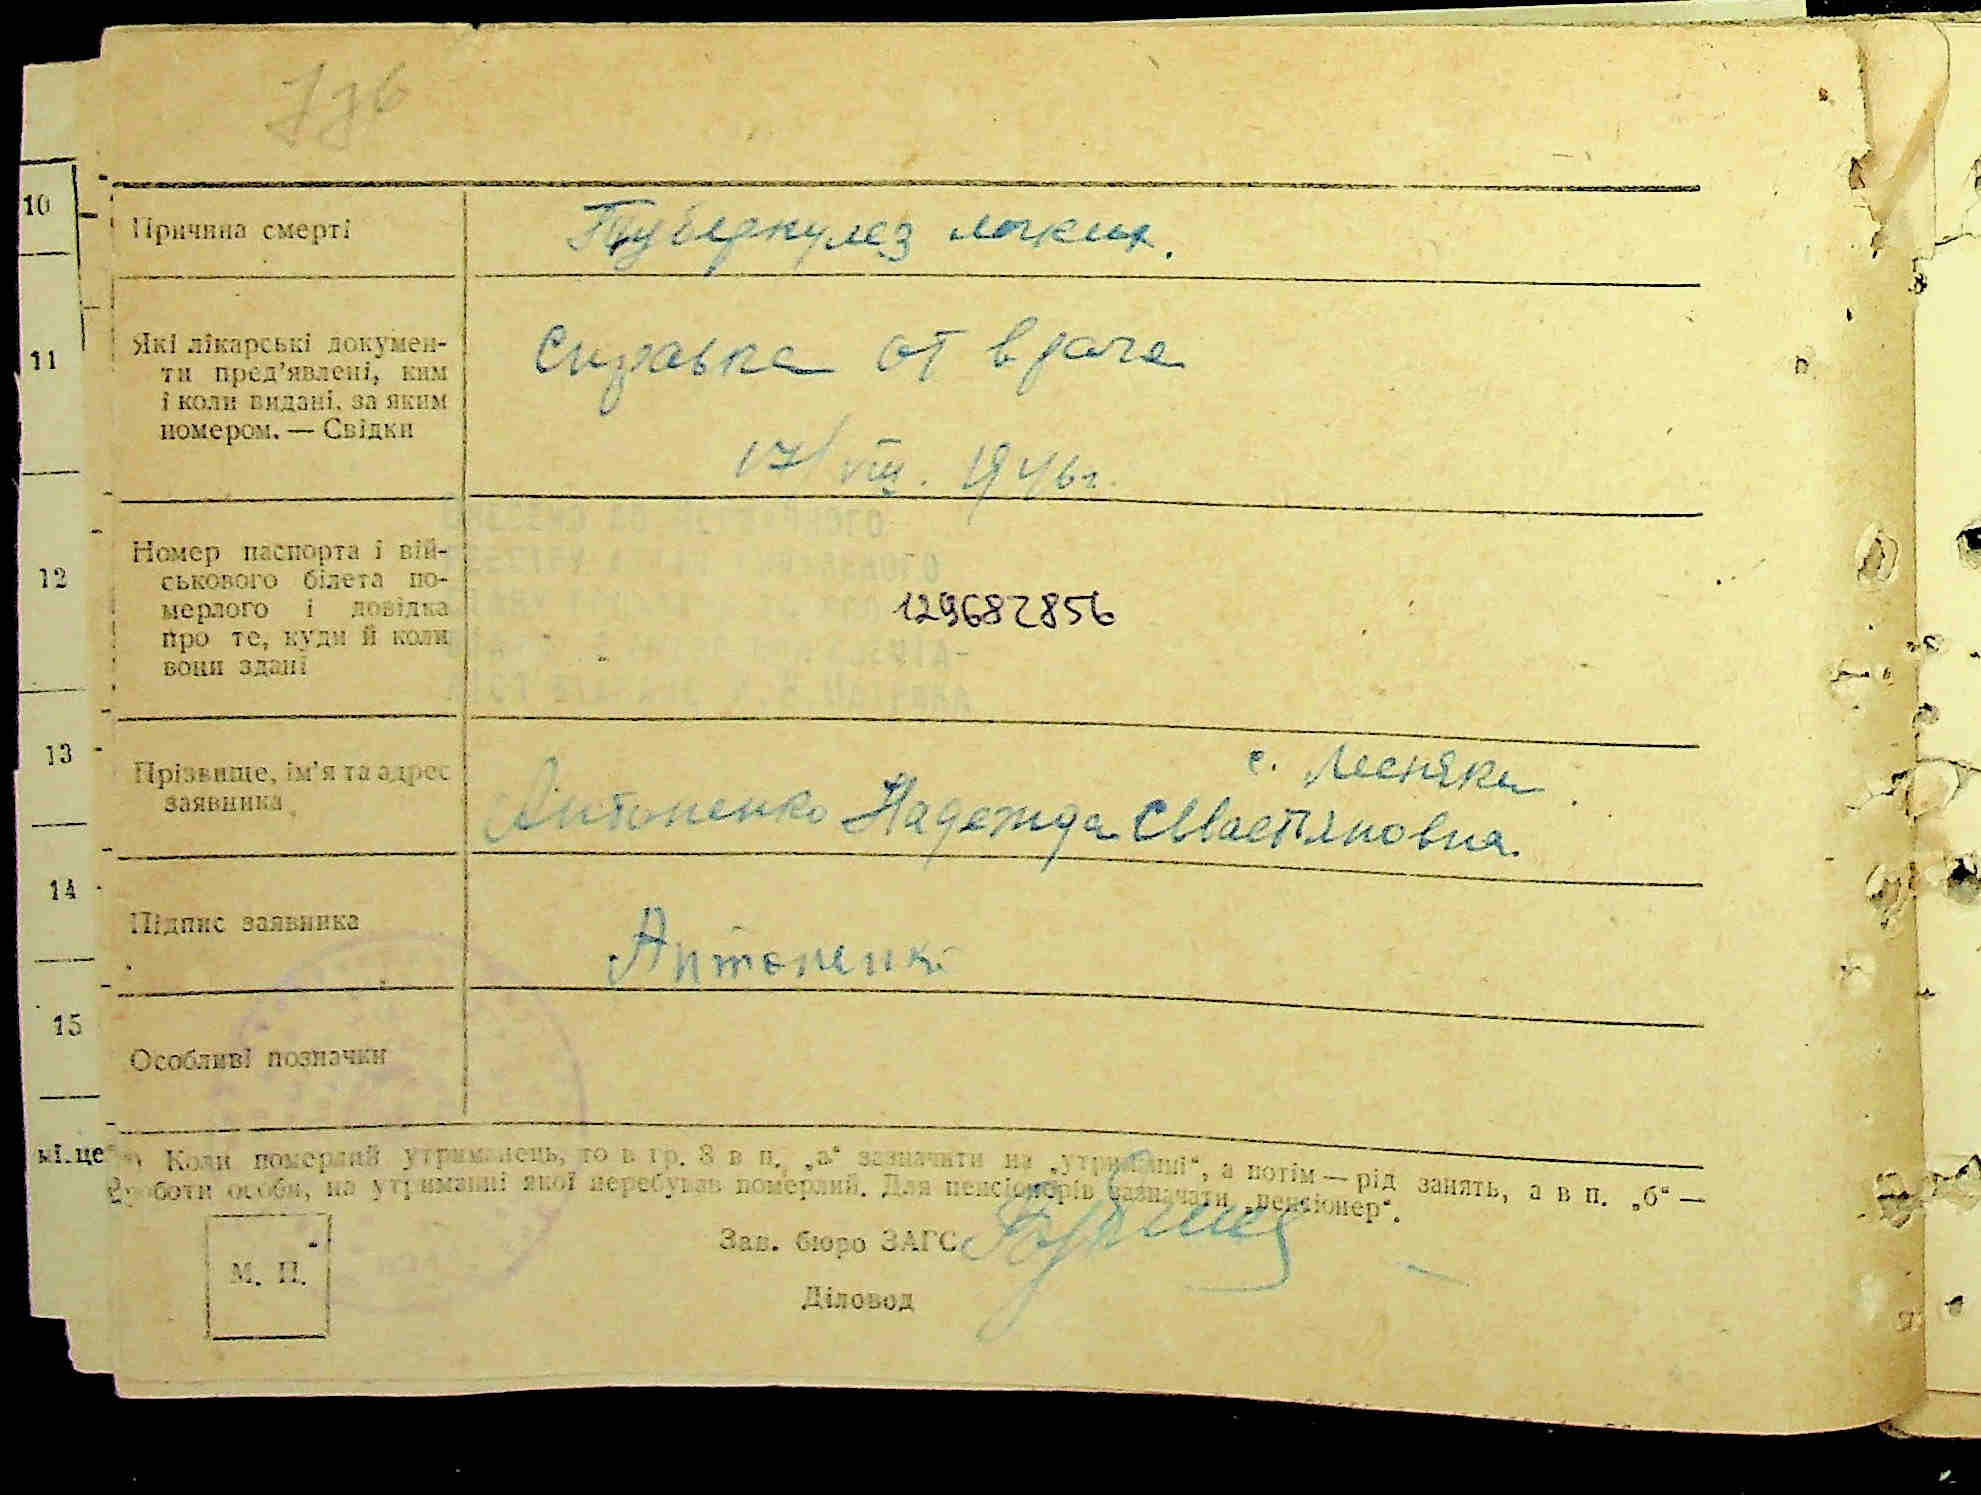 10
Причина смерті
Туберкулез легких.
11
Які лікарські докумен-
ти пред’явлені, ким
і коли видані, за яким
номером. — Свідки
Справка от врача
17/VIII. 1946г.
12
Номер паспорта і вій-
ськового білета по-
мерлого і довідка
про те, куди й коли
вони здані
129682856
13
Прізвище, ім’я та адрес
заявника
с. Лесняки.
Антоненко Надежда
14
Підпис заявника
Антоненко
15
Особливі позначки
Коли померлий утриманець, то в гр. 8 в п. „а“ зазначити на „утриманні“, а потім — рід занять, а в п. „б“ —
роботи особи, на утриманні якої перебував померлий. Для пенсіонерів зазначати „пенсіонер“.
М. П.
Зав. бюро ЗАГС
Діловод